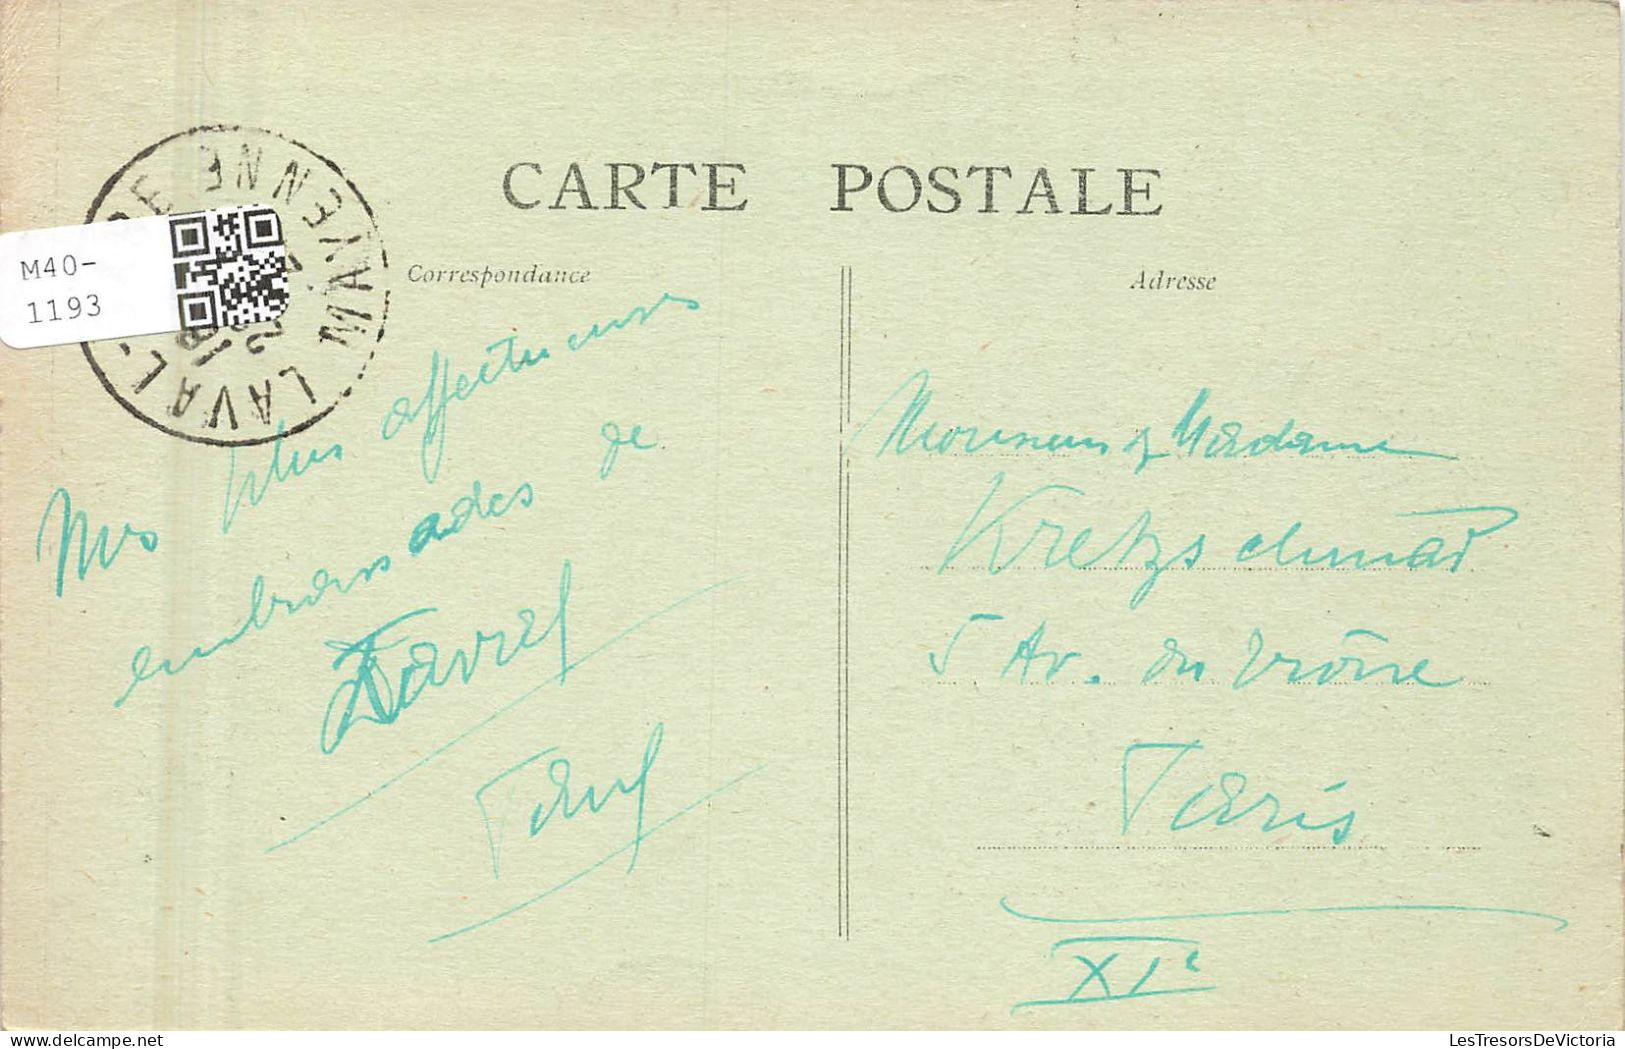 CARTE POSTALE
Correspondance
Adresse
M40-
1193
LAVAL
MAYENNE
Mes plus affectueuses
embrassades de
Paul
Monsieur & Madame
Kretzschmar
5 Av. du Trône
Paris
XIe
LesTresorsDeVictoria
LesTresorsDeVictoria - delcampe.net